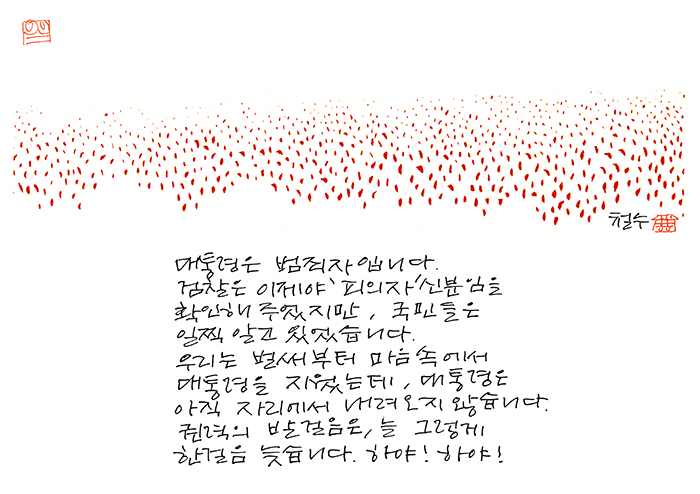 철수
대통령은 범죄자입니다.
검찰은 이제야 '피의자' 신분임을
확인해 주었지만, 국민들은
일찍 알고 있었습니다.
우리는 벌써부터 마음속에서
대통령을 지웠는데, 대통령은
아직 자리에서 내려오지 않습니다.
권력의 발걸음은, 늘 그렇게
한걸음 늦습니다. 하야! 하야!